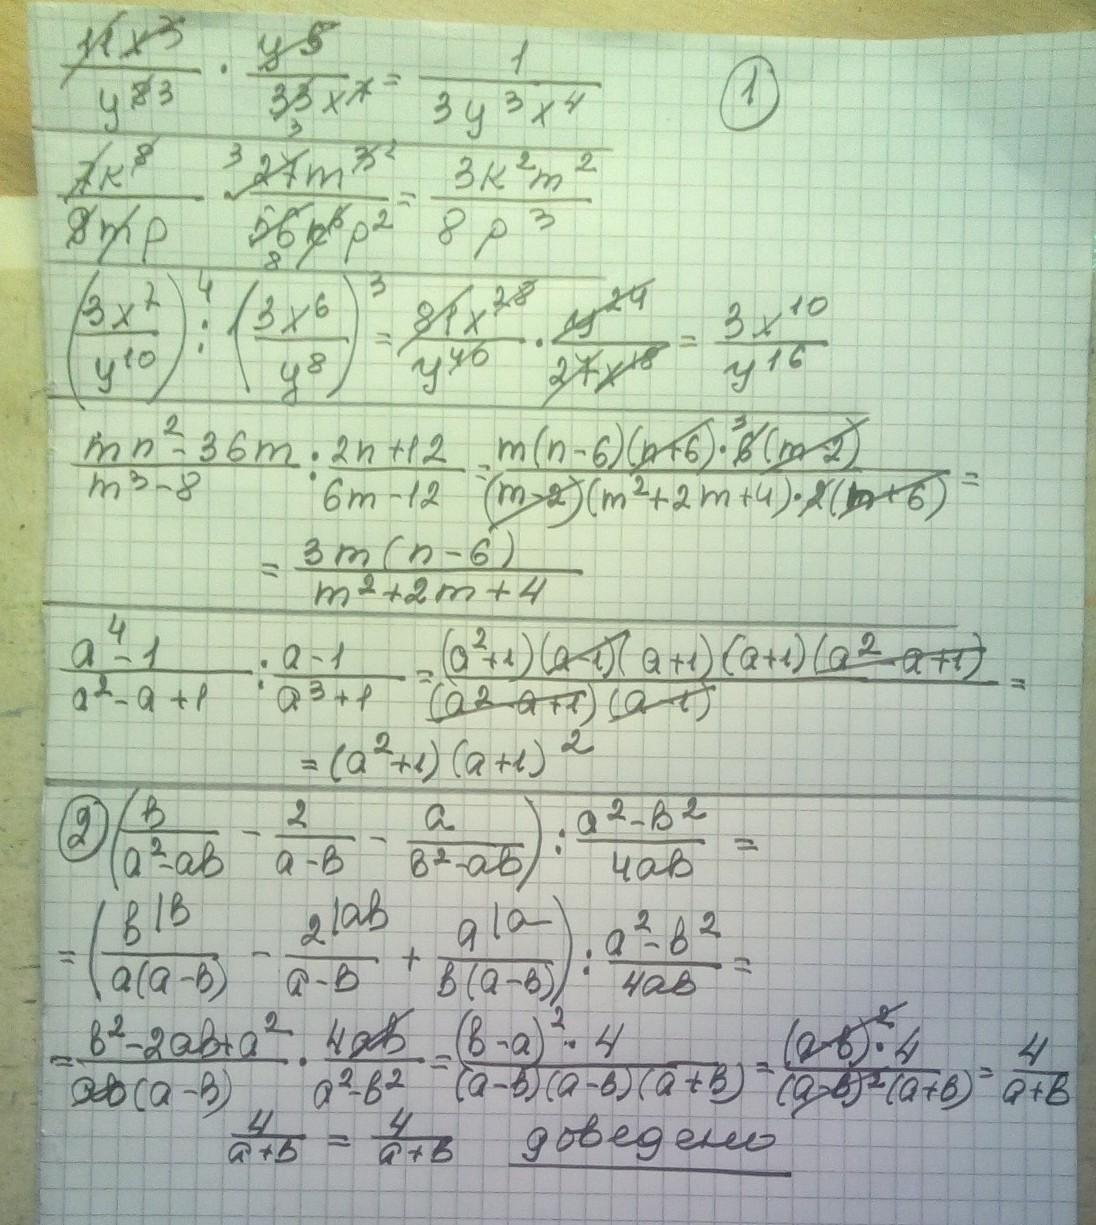 11x³/y⁸ ³ · y⁵/33x⁷ 3 = 1/3y³x⁴ ①
7k⁸/8mp · ³ 27m³ ²/56k⁶p² 8 = 3k²m²/8p³
(3x⁷/y¹⁰)⁴ : (3x⁶/y⁸)³ = 81x²⁸/y⁴⁰ · y²⁴/27x¹⁸ = 3x¹⁰/y¹⁶
mn²-36m/m³-8 : 2n+12/6m-12 = m(n-6)(n+6)·³6(m-2)/(m-2)(m²+2m+4)·2(n+6) =
= 3m(n-6)/m²+2m+4
a⁴-1/a²-a+1 : a-1/a³+1 = (a²+1)(a-1)(a+1)(a+1)(a²-a+1)/(a²-a+1)(a-1) =
= (a²+1)(a+1)²
② (в/a²-aв - 2/a-в - a/в²-aв) : a²-в²/4aв =
= (в|в/a(a-в) - 2|aв/a-в + a|a/в(a-в)) : a²-в²/4aв =
= в²-2aв+a²/aв(a-в) · 4aв/a²-в² = (в-a)²·4/(a-в)(a-в)(a+в) = (a-в)²·4/(a-в)²(a+в) = 4/a+в
4/a+в = 4/a+в доведено